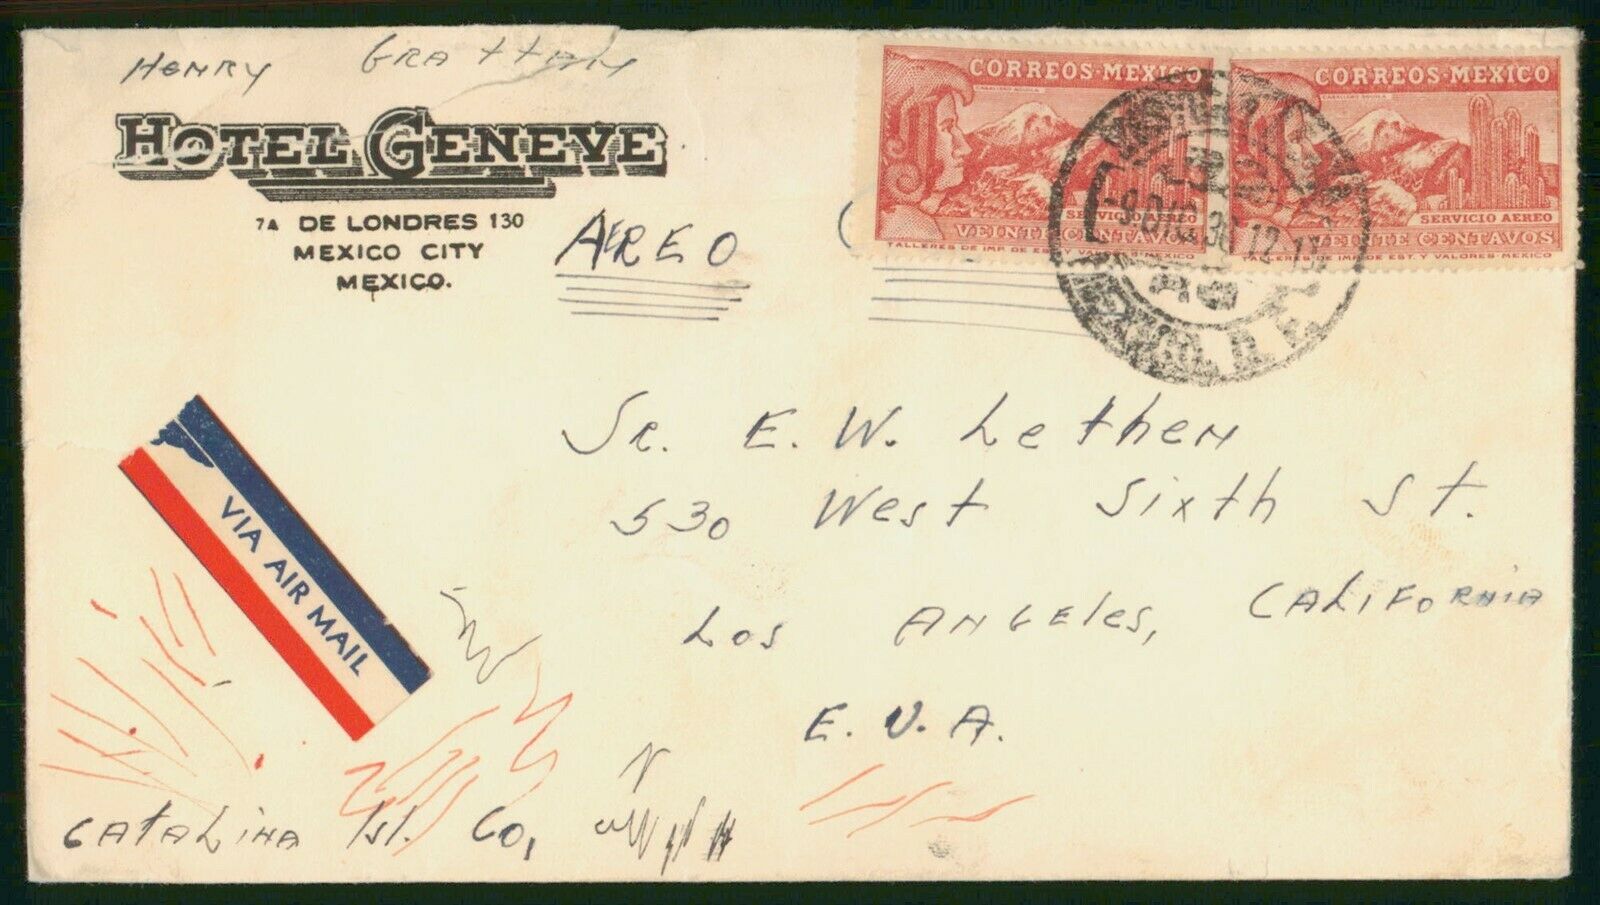 HENRY GRATTAN
HOTEL GENEVE
7A DE LONDRES 130
MEXICO CITY
MEXICO.
AEREO
CORREOS-MEXICO
CABALLERO AGUILA
SERVICIO AEREO
VEINTE CENTAVOS
TALLERES DE IMP. DE EST. MEXICO
CORREOS-MEXICO
CABALLERO AGUILA
SERVICIO AEREO
VEINTE CENTAVOS
TALLERES DE IMP. DE EST. Y VALORES-MEXICO
Sr. E. W. Lethen
530 West Sixth St.
Los Angeles, California
E. U. A.
VIA AIR MAIL
Catalina Isl. Co,